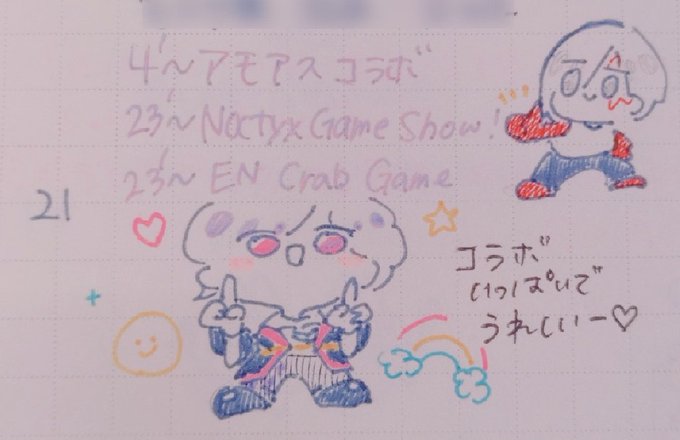 4'~アモアスコラボ
23'~Noctyx Game Show!
23'~ EN Crab Game
21
コラボ
いっぱいで
うれしいー♡